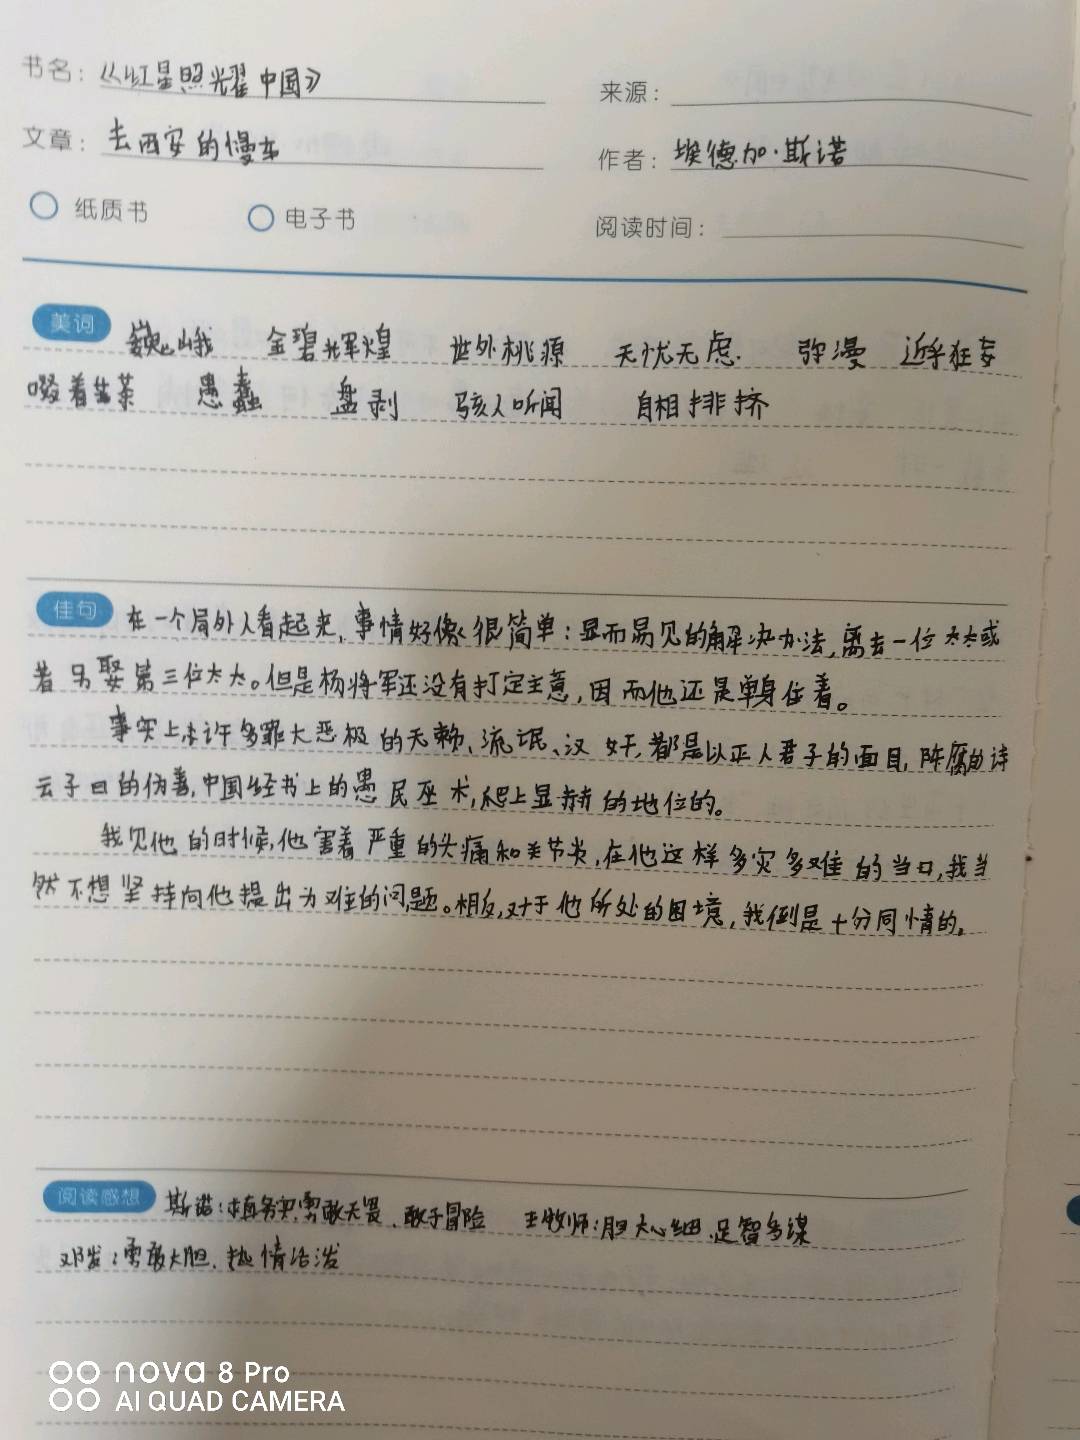 书名：《红星照耀中国》
来源：
文章：去西安的慢车
作者：埃德加·斯诺
纸质书 电子书 阅读时间：
美词 巍峨 金碧辉煌 世外桃源 无忧无虑 弥漫 近乎狂妄
啜着苦茶 愚蠢 盘剥 骇人听闻 自相排挤
佳句 在一个局外人看起来，事情好像很简单：显而易见的解决办法，离去一位太太或
者另娶第三位太太。但是杨将军还没有打定主意，因而他还是单身住着。
事实上许多罪大恶极的无赖、流氓、汉奸，都是以正人君子的面目，陈腐的诗
云子曰的伪善，中国经书上的愚民巫术，爬上显赫的地位的。
我见他的时候，他害着严重的头痛和关节炎，在他这样多灾多难的当口，我当
然不想坚持向他提出为难的问题。相反，对于他所处的困境，我倒是十分同情的。
阅读感想 斯诺：求真务实，勇敢无畏、敢于冒险 王牧师：胆大心细、足智多谋
邓发：勇敢大胆、热情活泼
nova 8 Pro
AI QUAD CAMERA